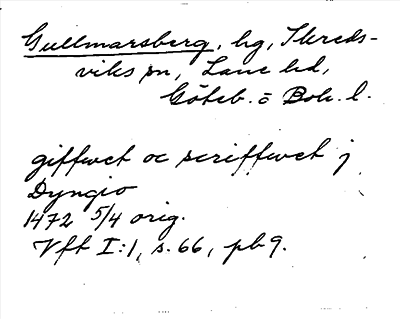 Gullmarsberg, hg, Skreds-
viks sn, Lane hd,
Göteb. o Boh. l.
giffwet oc scriffwet j
Dyngio
1472 5/4 orig.
Vft I:1, s. 66, pb 9.